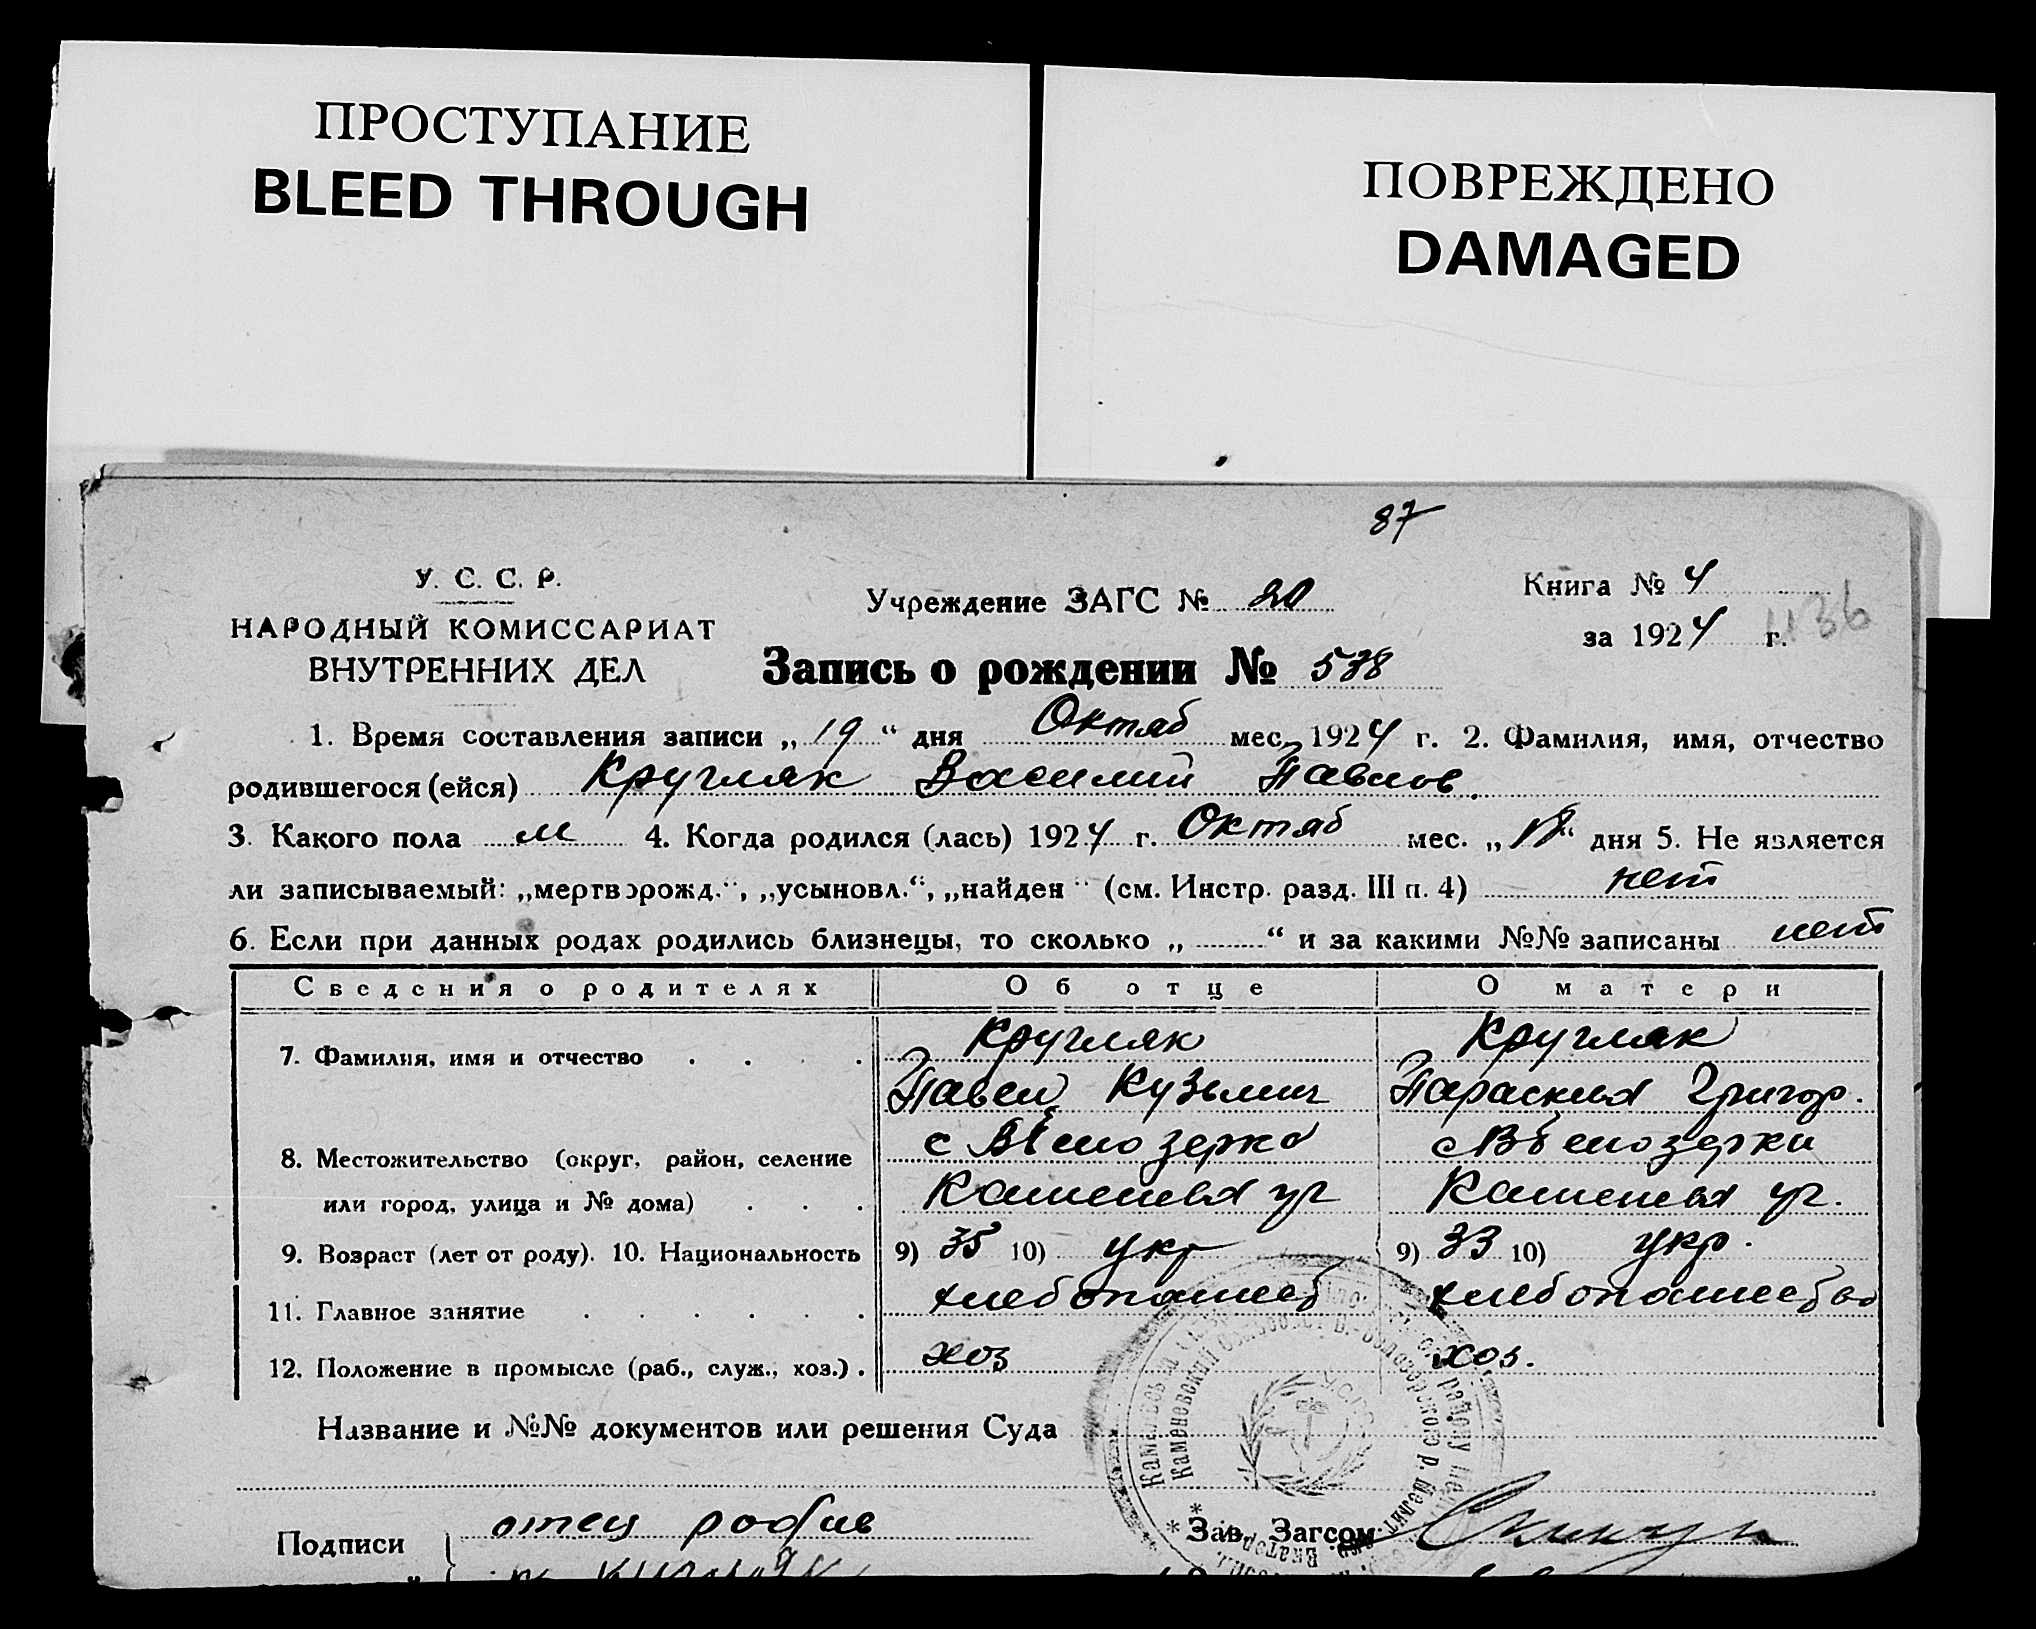 ПРОСТУПАНИЕ
BLEED THROUGH
ПОВРЕЖДЕНО
DAMAGED
87
У. С. С. Р.
НАРОДНЫЙ КОМИССАРИАТ
ВНУТРЕННИХ ДЕЛ
Учреждение ЗАГС № 20
Книга № 4
за 1924 г.
Запись о рождении № 578
1. Время составления записи „19“ дня Октяб мес. 1924 г. 2. Фамилия, имя, отчество
родившегося (ейся) Кругляк Василий Павлов.
3. Какого пола м 4. Когда родился (лась) 1924 г. Октяб мес. „ “ дня 5. Не является
ли записываемый: „мертворожд.“, „усыновл.“, „найден“ (см. Инстр. разд. III п. 4) нет
6. Если при данных родах родились близнецы, то сколько „ “ и за какими №№ записаны нет
Сведения о родителях Об отце О матери
7. Фамилия, имя и отчество Кругляк Кругляк
Павел Кузьмич Параскив Григор.
8. Местожительство (округ, район, селение с Белозерка с Белозерки
или город, улица и № дома) Каменева ул Каменева ул.
9. Возраст (лет от роду). 10. Национальность 9) 35 10) укр 9) 33 10) укр.
11. Главное занятие хлебопашеб хлебопашебво
12. Положение в промысле (раб., служ., хоз.) хоз хоз.
Название и №№ документов или решения Суда
Подписи отец
Зав. Загсом
Кругляк